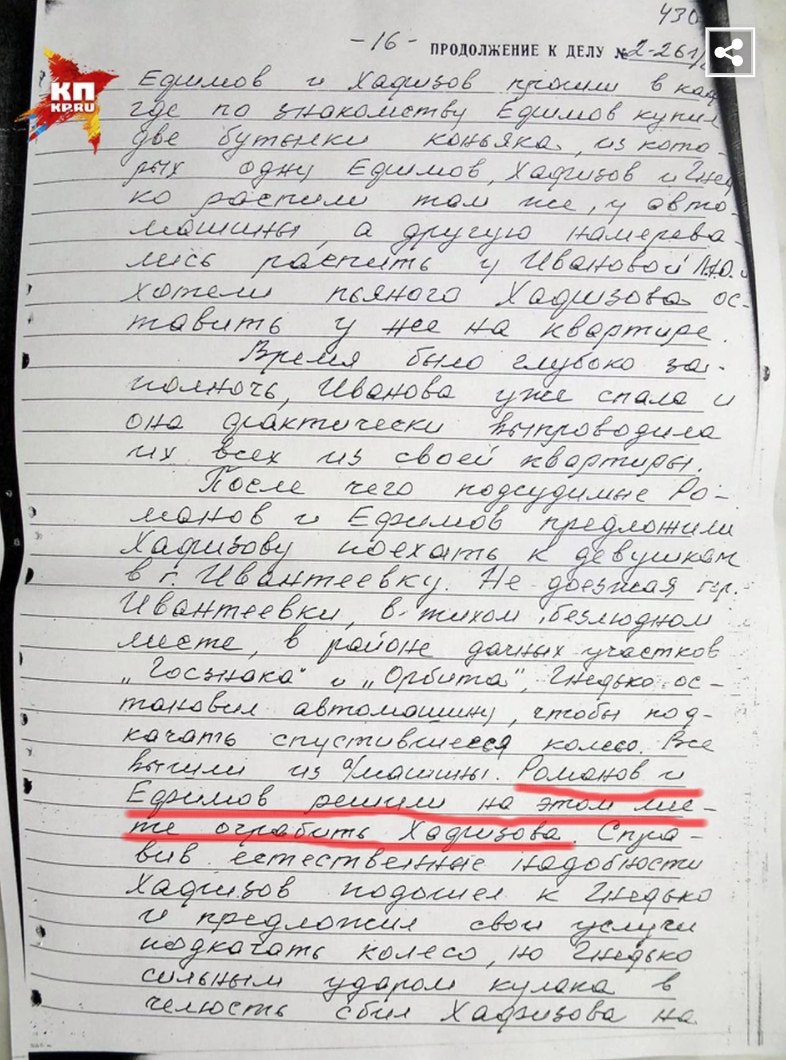 430
-16- ПРОДОЛЖЕНИЕ К ДЕЛУ № 2-261/
КП
KP.RU
Ефимов и Хафизов прошли в
где по знакомству Ефимов купил
две бутылки коньяка, из кото-
рых одну Ефимов, Хафизов и Гнедь
ко распили там же, у авто-
машины, а другую намерева-
лись распить у Ивановой Л.Ю. и
хотели пьяного Хафизова ос-
тавить у нее на квартире.
Время было глубоко за-
полночь, Иванова уже спала и
она фактически выпроводила
их всех из своей квартиры.
После чего подсудимые Ро-
манов и Ефимов предложили
Хафизову поехать к девушкам
в г. Ивантеевку. Не доезжая гор.
Ивантеевки, в тихом безлюдном
месте, в районе дачных участков
„Госзнака" и „Орбита", Гнедько ос-
тановил автомашину, чтобы под-
качать спустившееся колесо. Все
вышли из а/машины. Романов и
Ефимов решили на этом мес-
те ограбить Хафизова. Спра-
вив естественные надобности
Хафизов подошел к Гнедько
и предложил свои услуги
подкачать колесо, но Гнедько
сильным ударом кулака в
челюсть сбил Хафизова на